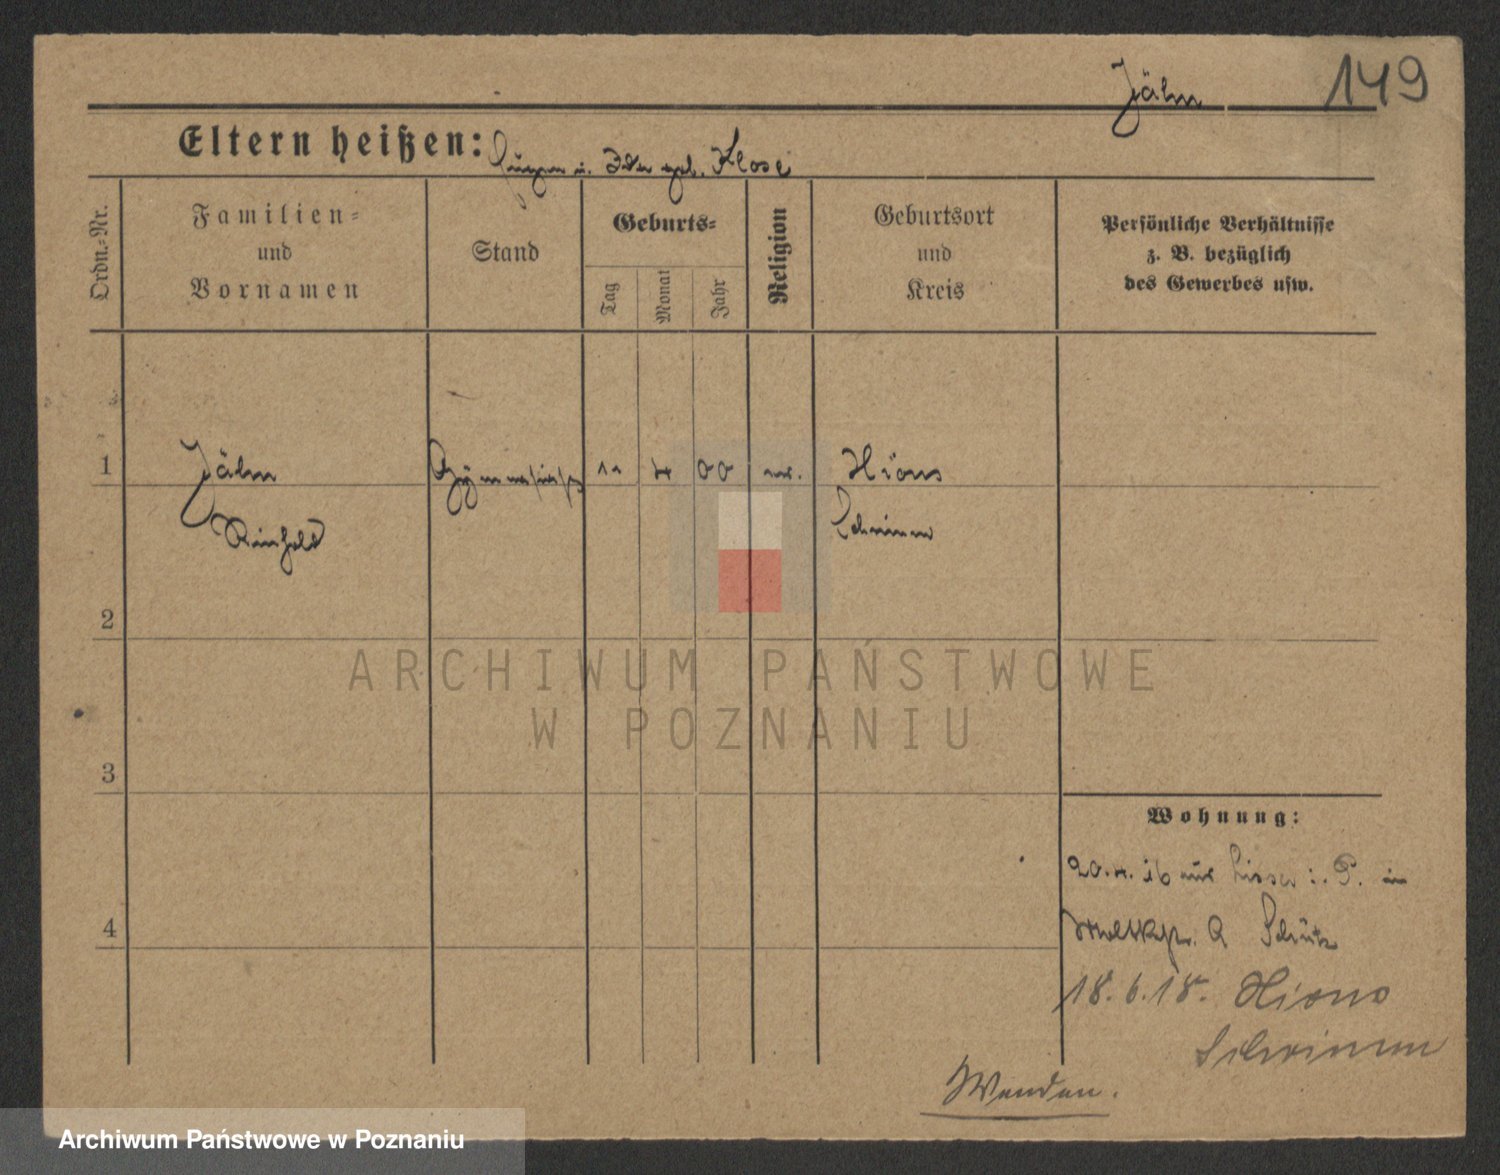 Jähn 149
Eltern heißen: Eugen u. Ida geb. Klose
Ordn.-Nr.
Familien-
und
Vornamen
Stand
Geburts-
Tag
Monat
Jahr
Religion
Geburtsort
und
Kreis
Persönliche Verhältnisse
z. B. bezüglich
des Gewerbes usw.
1 Jähn Gymnasiast 11 4 00 Xions
Reinhold Schrimm
2
ARCHIWUM PAŃSTWOWE
W POZNANIU
3
Wohnung:
20.4.16 aus Lissa i. P. in
4
Schütz
18.6.18. Xions
Schrimm
Wenden.
Archiwum Państwowe w Poznaniu